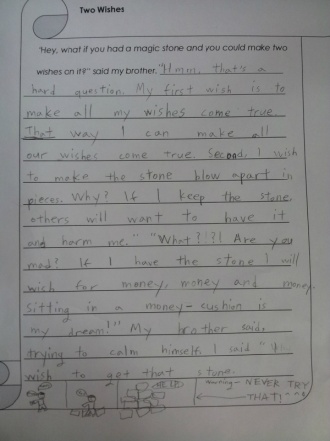 Two Wishes
"Hey, what if you had a magic stone and you could make two
wishes on it?" said my brother. "Hmm, that's a
hard question. My first wish is to
make all my wishes come true.
That way I can make all
our wishes come true. Second, I wish
to make the stone blow apart in
pieces. Why? If I keep the stone,
others will want to have it
and harm me." "What?!?! Are you
mad? If I have the stone I will
wish for money, money and money.
Sitting in a money-cushion is
my dream!" My brother said,
trying to calm himself. I said "
wish to get that stone.
NEVER TRY
THAT!"